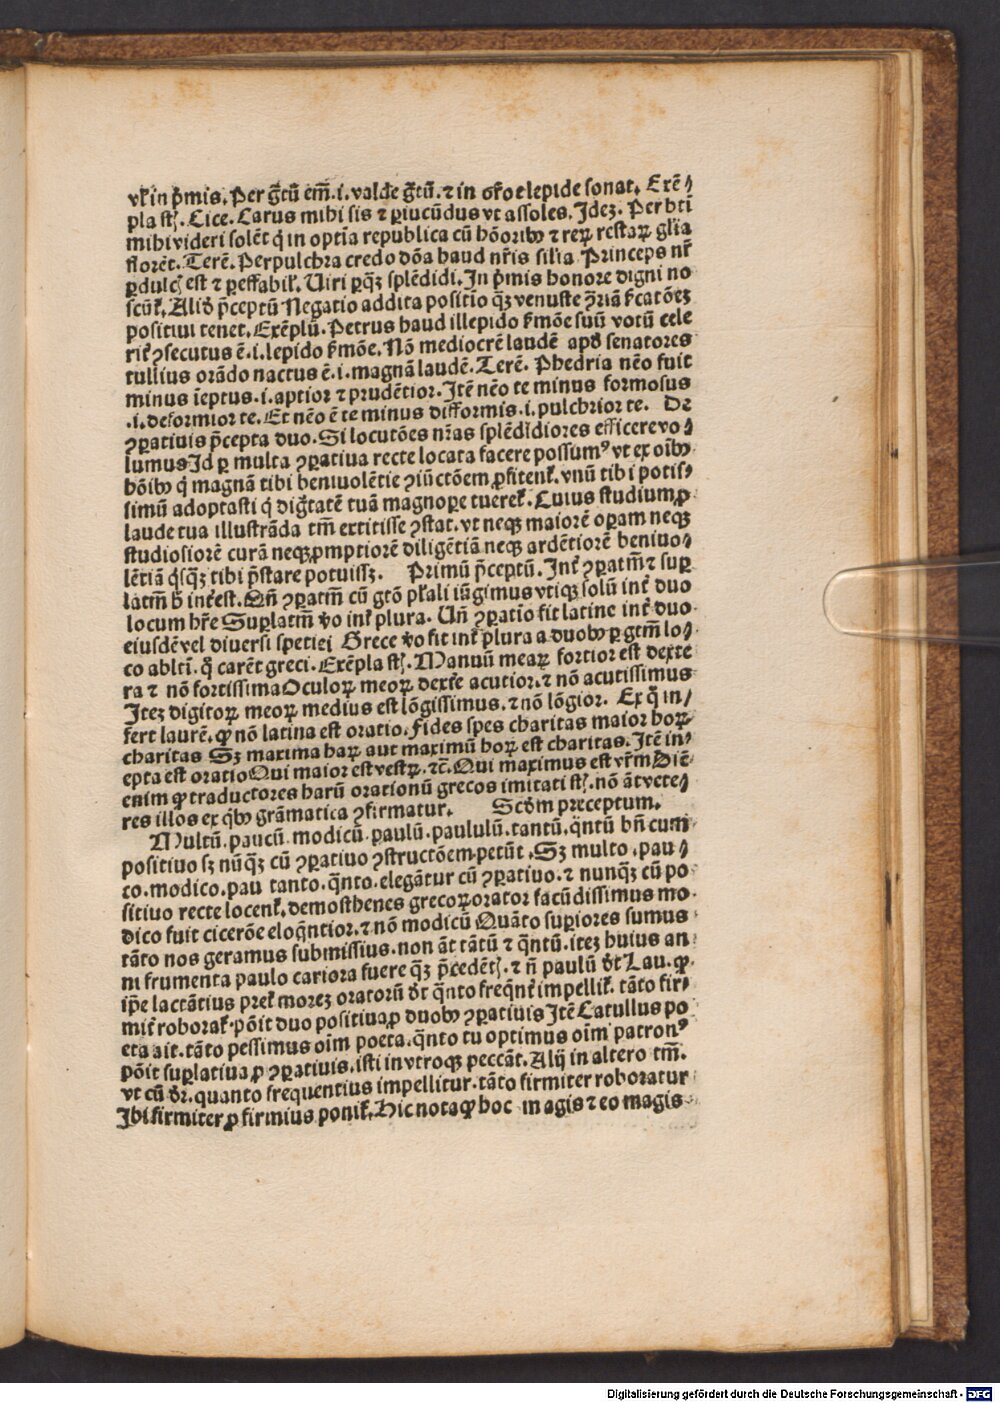 vl' in p̄mis. Per gr̄tū em̄.i. valde gr̄tū. ⁊ in gr̄o elepide sonat. Exē⸗
pla st̄. Cice. Carus mihi sis ⁊ ꝑiucūdus vt assoles. Idez. Per bt̄i
mihi videri solēt q̇ in optīa republica cū hōoribꝰ ⁊ reꝝ restaꝝ gl̄ia
florēt. Terē. Perpulchra credo dōa haud nr̄is sil'ia Princeps nr̄
ꝑdulcꝭ est ⁊ ꝑeffabil'. Uiri ꝑqꝫ splēdidi. In p̄mis honore digni no
scūt'. Aliđ p̄ceptū Negatio addita positio qꝫ venuste ꝯriā f'catōez
positiui tenet. Exēplū. Petrus haud illepido f'mōe suū votū cele
rit' ꝯsecutus ē.i. lepido f'mōe. Nō mediocrē laudē apđ senatores
tullius orādo nactus ē.i. magnā laudē. Terē. Phedria nēo fuit
minus īeptus.i. aptior ⁊ prudētior. Itē nēo te minus formosus
.i. deformior te. Et nēo ē te minus difformis.i. pulchrior te. De
ꝯꝑatiuis p̄cepta duo. Si locutōes nr̄as splēdidiores efficere vo⸗
lumus Id ꝑ multa ꝯꝑatiua recte locata facere possumꝰ vt ex oībꝰ
bōibꝰ q̇ magnā tibi beniuolētie ꝯiūctōem ꝓfitent'. vnū tibi potis⸗
simū adoptasti q̇ dig̃tatē tuā magnoꝑe tueret'. Cuius studium ꝓ
laude tua illustrāda tm̄ extitisse ꝯstat. vt neqꝫ maiorē oꝑam neqꝫ
studiosiorē curā neqꝫ ꝓmptiorē diligētiā neqꝫ ardētiorē beniuo⸗
lētiā q̇sqꝫ tibi p̄stare potuissꝫ. Primū p̄ceptū. Int' ꝯꝑatm̄ ⁊ suꝑ
latm̄ h̄ int'est. Qn̄ ꝯꝑatm̄ cū gtō pl'ali iūgimus vtiqꝫ solū int' duo
locum hr̄e Suꝑlatm̄ v̓o int' plura. Un̄ ꝯꝑatio fit latine int' duo
eiusdē vel diuersi spetiei Grece v̓o fit int' plura a duobꝰ ꝑ gtm̄ lo⸗
co ablti. q̄ carēt greci. Exēpla st̄. Manuū meaꝝ fortior est dexte
ra ⁊ nō fortissima Oculoꝝ meoꝝ dext'e acutior. ⁊ nō acutissimus
Itez digitoꝝ meoꝝ medius est lōgissimus. ⁊ nō lōgior. Ex q̄ in⸗
fert laurē. ꝙ nō latina est oratio. Fides spes charitas maior hoꝝ
charitas Sꝫ maxima haꝝ aut maximū hoꝝ est charitas. Itē in⸗
epta est oratio Qui maior est vestꝝ. ⁊c̄. Qui maximus est vr̄m Diē
enim ꝙ traductores harū orationū grecos imitati st̄. nō āt vete⸗
res illos ex q̇bꝰ grāmatica ꝯfirmatur. Scđm preceptum.
Multū. paucū. modicū. paulū. paululū. tantū. q̄ntū bn̄ cum
positiuo sꝫ nūqꝫ cū ꝯꝑatiuo ꝯstructōem petūt. Sꝫ multo. pau⸗
co. modico. pau tanto. q̄nto. elegātur cū ꝯꝑatiuo. ⁊ nunqꝫ cū po
sitiuo recte locent'. demosthenes grecoꝝ orator facūdissimus mo
dico fuit cicerōe eloq̄ntior. ⁊ nō modicū Quāto suꝑiores sumus
tāto nos geramus submissius. non āt tātū ⁊ q̄ntū. itez huius an
ni frumenta paulo cariora fuere qꝫ p̄cedētꝭ. ⁊ n̄ paulū đt Lau. ꝙ
ip̄e lactātius pret' morez oratorū đt q̄nto freq̄nt' impellit'. tāto fir⸗
mit' roborat'. pōit duo positiua ꝓ duobꝰ ꝯꝑatiuis Itē Catullus po
eta ait. tāto pessimus oīm poeta. q̄nto tu optimus oīm patronꝰ
pōit suꝑlatiua ꝓ ꝯꝑatiuis. isti in vtroqꝫ peccāt. Alij in altero tm̄.
vt cū đr. quanto frequentius impellitur. tāto firmiter roboratur
Ibi firmiter ꝓ firmius ponit'. Hic nota ꝙ hoc magis ⁊ eo magis
Digitalisierung gefördert durch die Deutsche Forschungsgemeinschaft - DFG